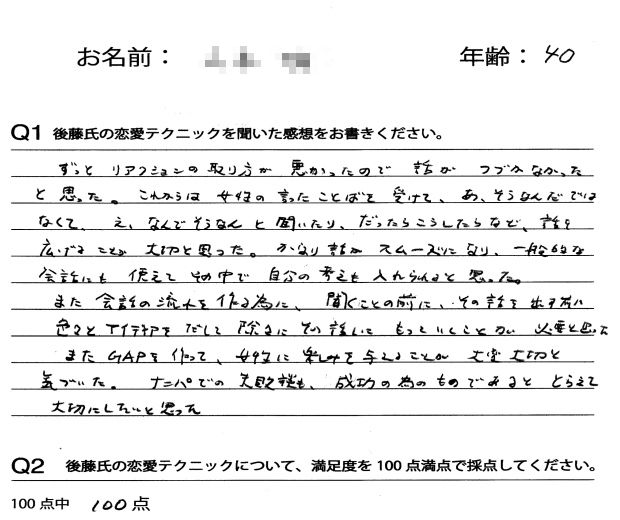 お名前： 年齢：40
Q1 後藤氏の恋愛テクニックを聞いた感想をお書きください。
ずっと リアクションの取り方が 悪かったので 話が つづかなかった
と思った。これからは 女性の言ったことばを 受けて、あ、そうなんだでは
なくて、え、なんでそうなん と聞いたり、だったらこうしたらなど、話を
広げることが 大切と思った。かなり話が スムーズになり、一般的な
会話にも 使えて その中で 自分の考えも 入れられると思った。
また 会話の流れを作る為に、聞くことの前に、その話を出す前に
色々とアイデアをだして 除々に その話しに もっていくことが 必要と思った
また GAPを作って、女性に 楽みを与えることが 大変大切と
気づいた。ナンパでの 失敗談も、成功の為のものであると とらえて
大切にしたいと思った
Q2 後藤氏の恋愛テクニックについて、満足度を100点満点で採点してください。
100点中 100点